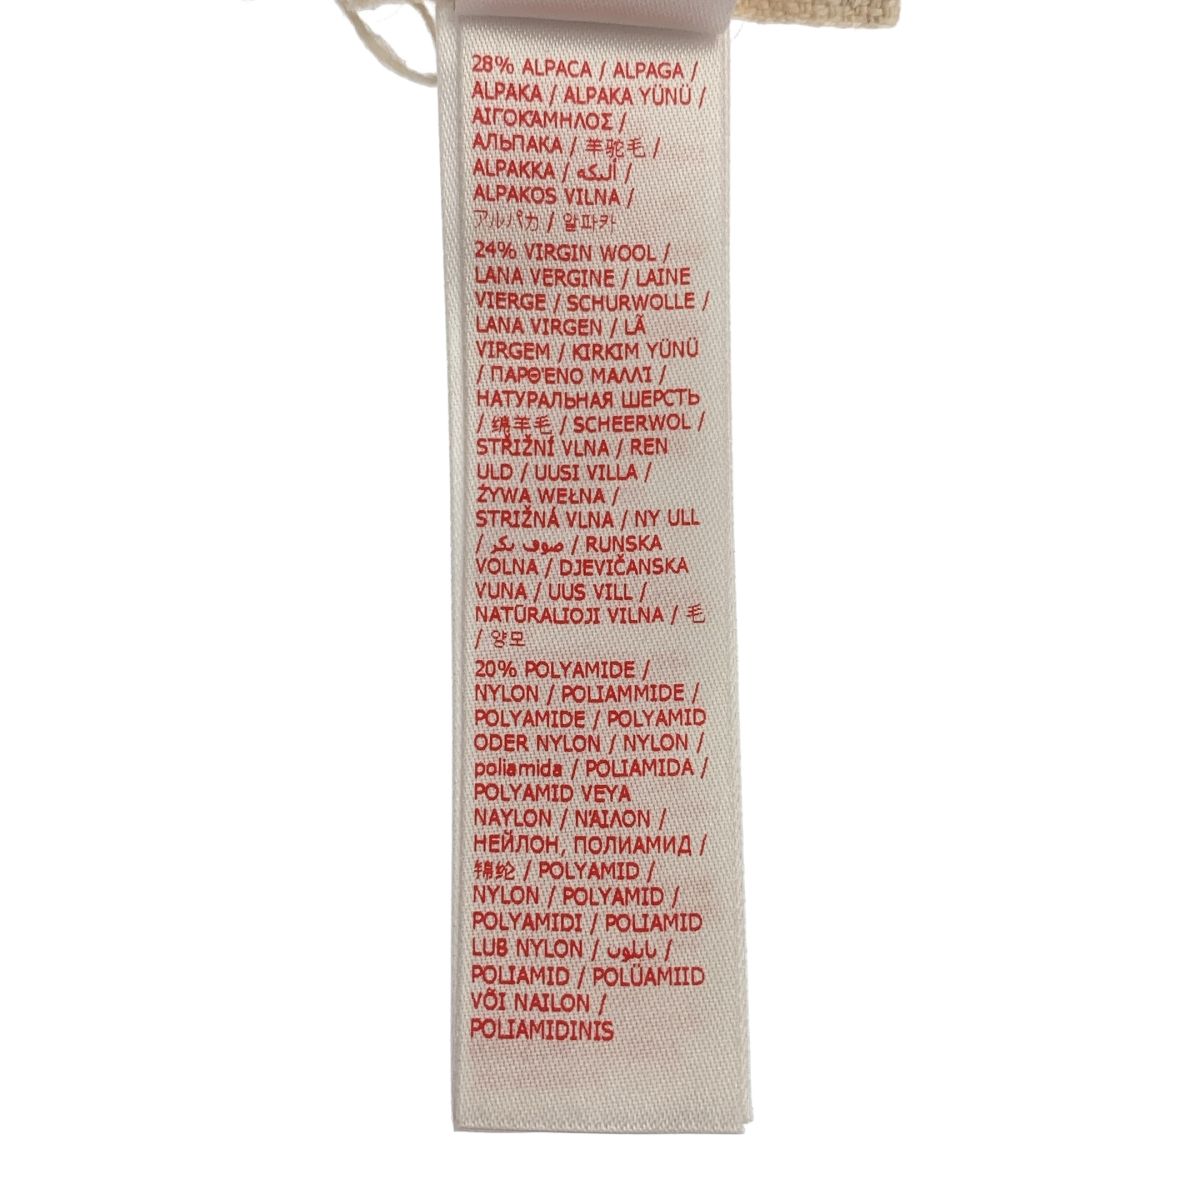 28% ALPACA / ALPAGA /
ALPAKA / ALPAKA YÜNÜ /
ΑΙΓΟΚΆΜΗΛΟΣ /
АЛЬПАКА / 羊驼毛 /
ALPAKKA / ألبكه /
ALPAKOS VILNA /
アルパカ / 알파카
24% VIRGIN WOOL /
LANA VERGINE / LAINE
VIERGE / SCHURWOLLE /
LANA VIRGEN / LÃ
VIRGEM / KIRKIM YÜNÜ
/ ΠΑΡΘΈΝΟ ΜΑΛΛΙ /
НАТУРАЛЬНАЯ ШЕРСТЬ
/ 绵羊毛 / SCHEERWOL /
STŘIŽNÍ VLNA / REN
ULD / UUSI VILLA /
ŻYWA WEŁNA /
STRIŽNÁ VLNA / NY ULL
/ صوف بكر / RUNSKA
VOLNA / DJEVIČANSKA
VUNA / UUS VILL /
NATŪRALIOJI VILNA / 毛
/ 양모
20% POLYAMIDE /
NYLON / POLIAMMIDE /
POLYAMIDE / POLYAMID
ODER NYLON / NYLON /
poliamida / POLIAMIDA /
POLYAMID VEYA
NAYLON / ΝΆΙΛΟΝ /
НЕЙЛОН, ПОЛИАМИД /
锦纶 / POLYAMID /
NYLON / POLYAMID /
POLYAMIDI / POLIAMID
LUB NYLON / نايلون /
POLIAMID / POLÜAMIID
VÕI NAILON /
POLIAMIDINIS